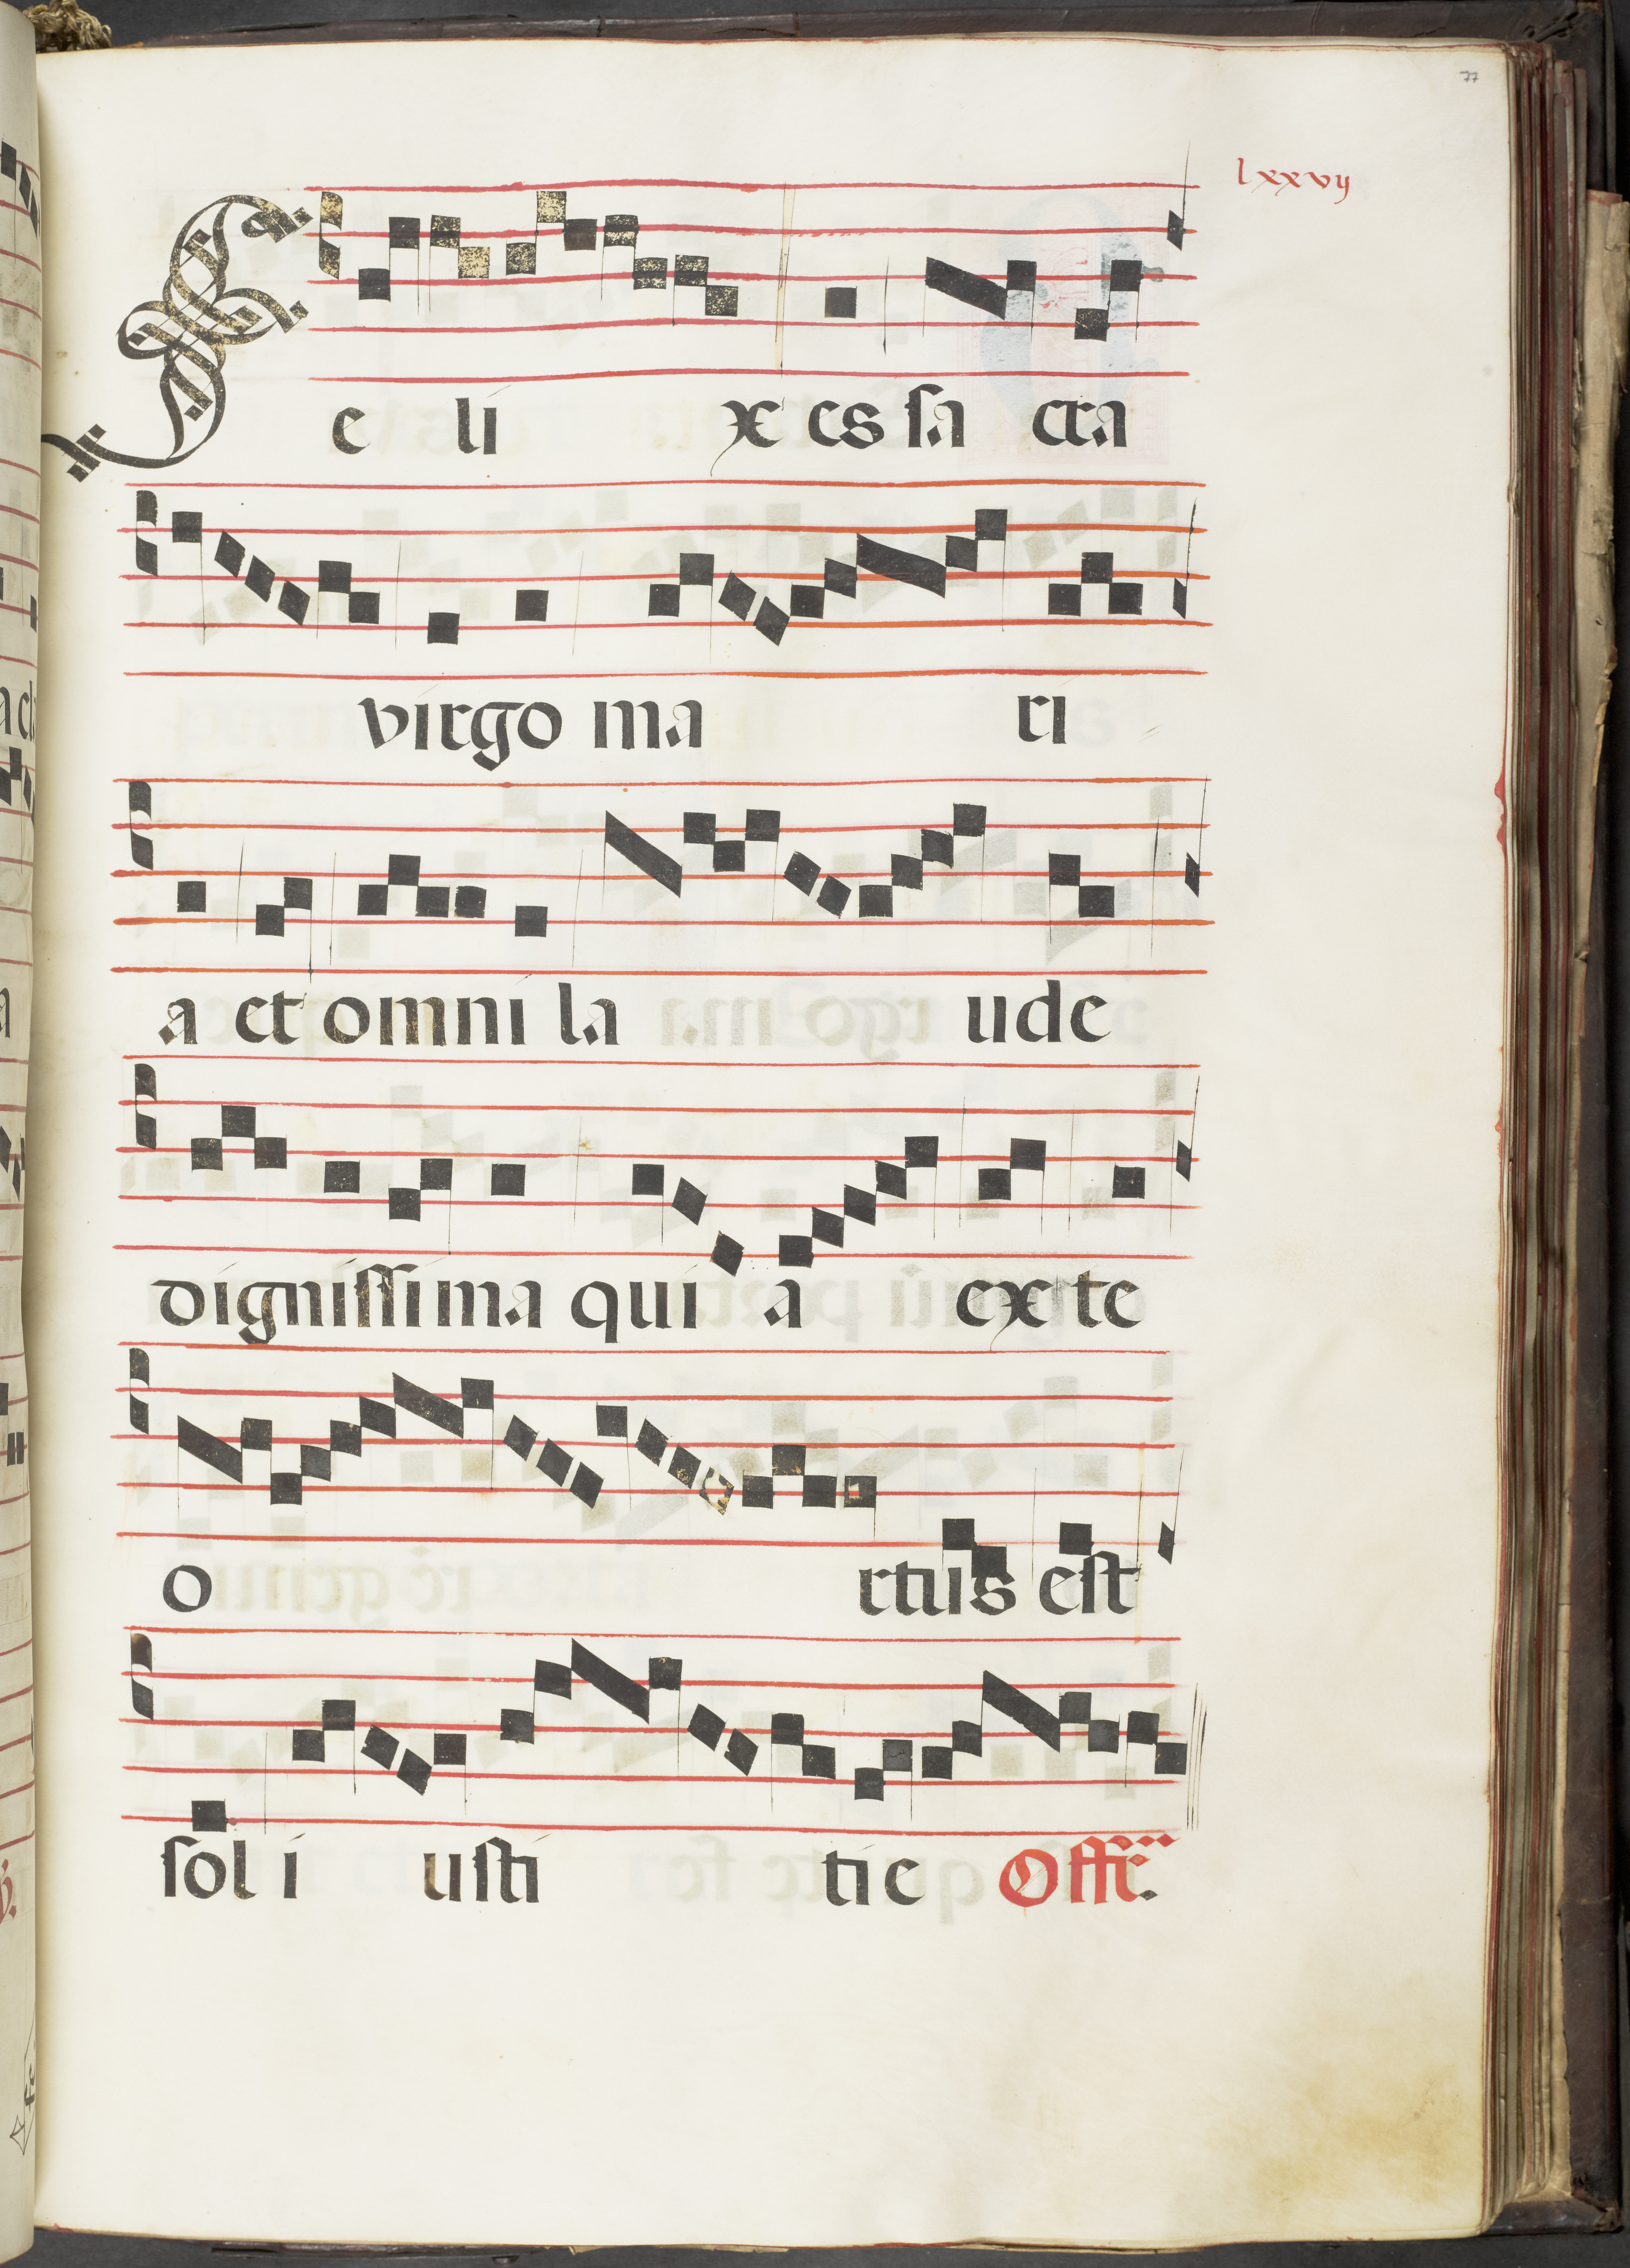 77
lxxvij
Feli x es sa cra
virgo ma ri
a et omni la ude
dignissima qui a ex te
o rtus est
sol i usti tie Offr.